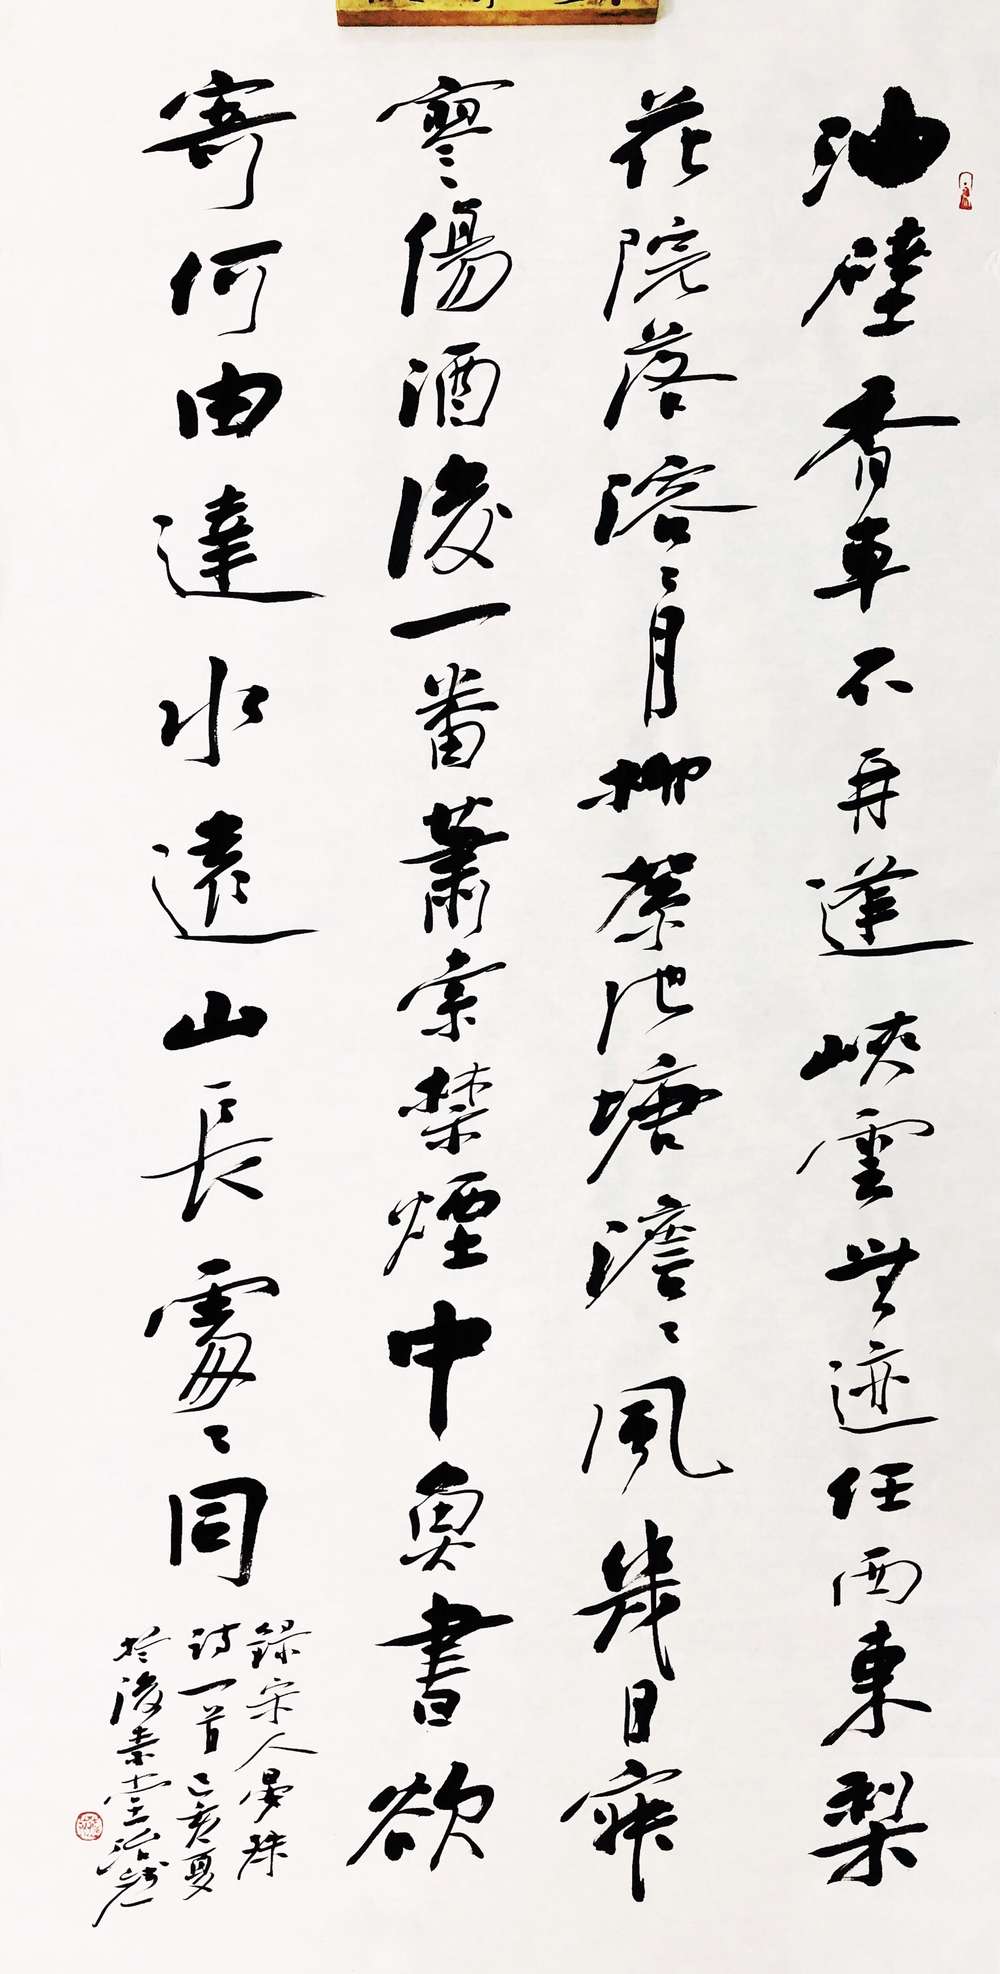 油壁香車不再逢峽雲無迹任西東梨
花院落溶〻月柳絮池塘澹〻風幾日寂
寥傷酒後一番蕭索禁煙中魚書欲
寄何由達水遠山長處〻同
錄宋人晏殊
詩一首己亥夏
於後素堂治